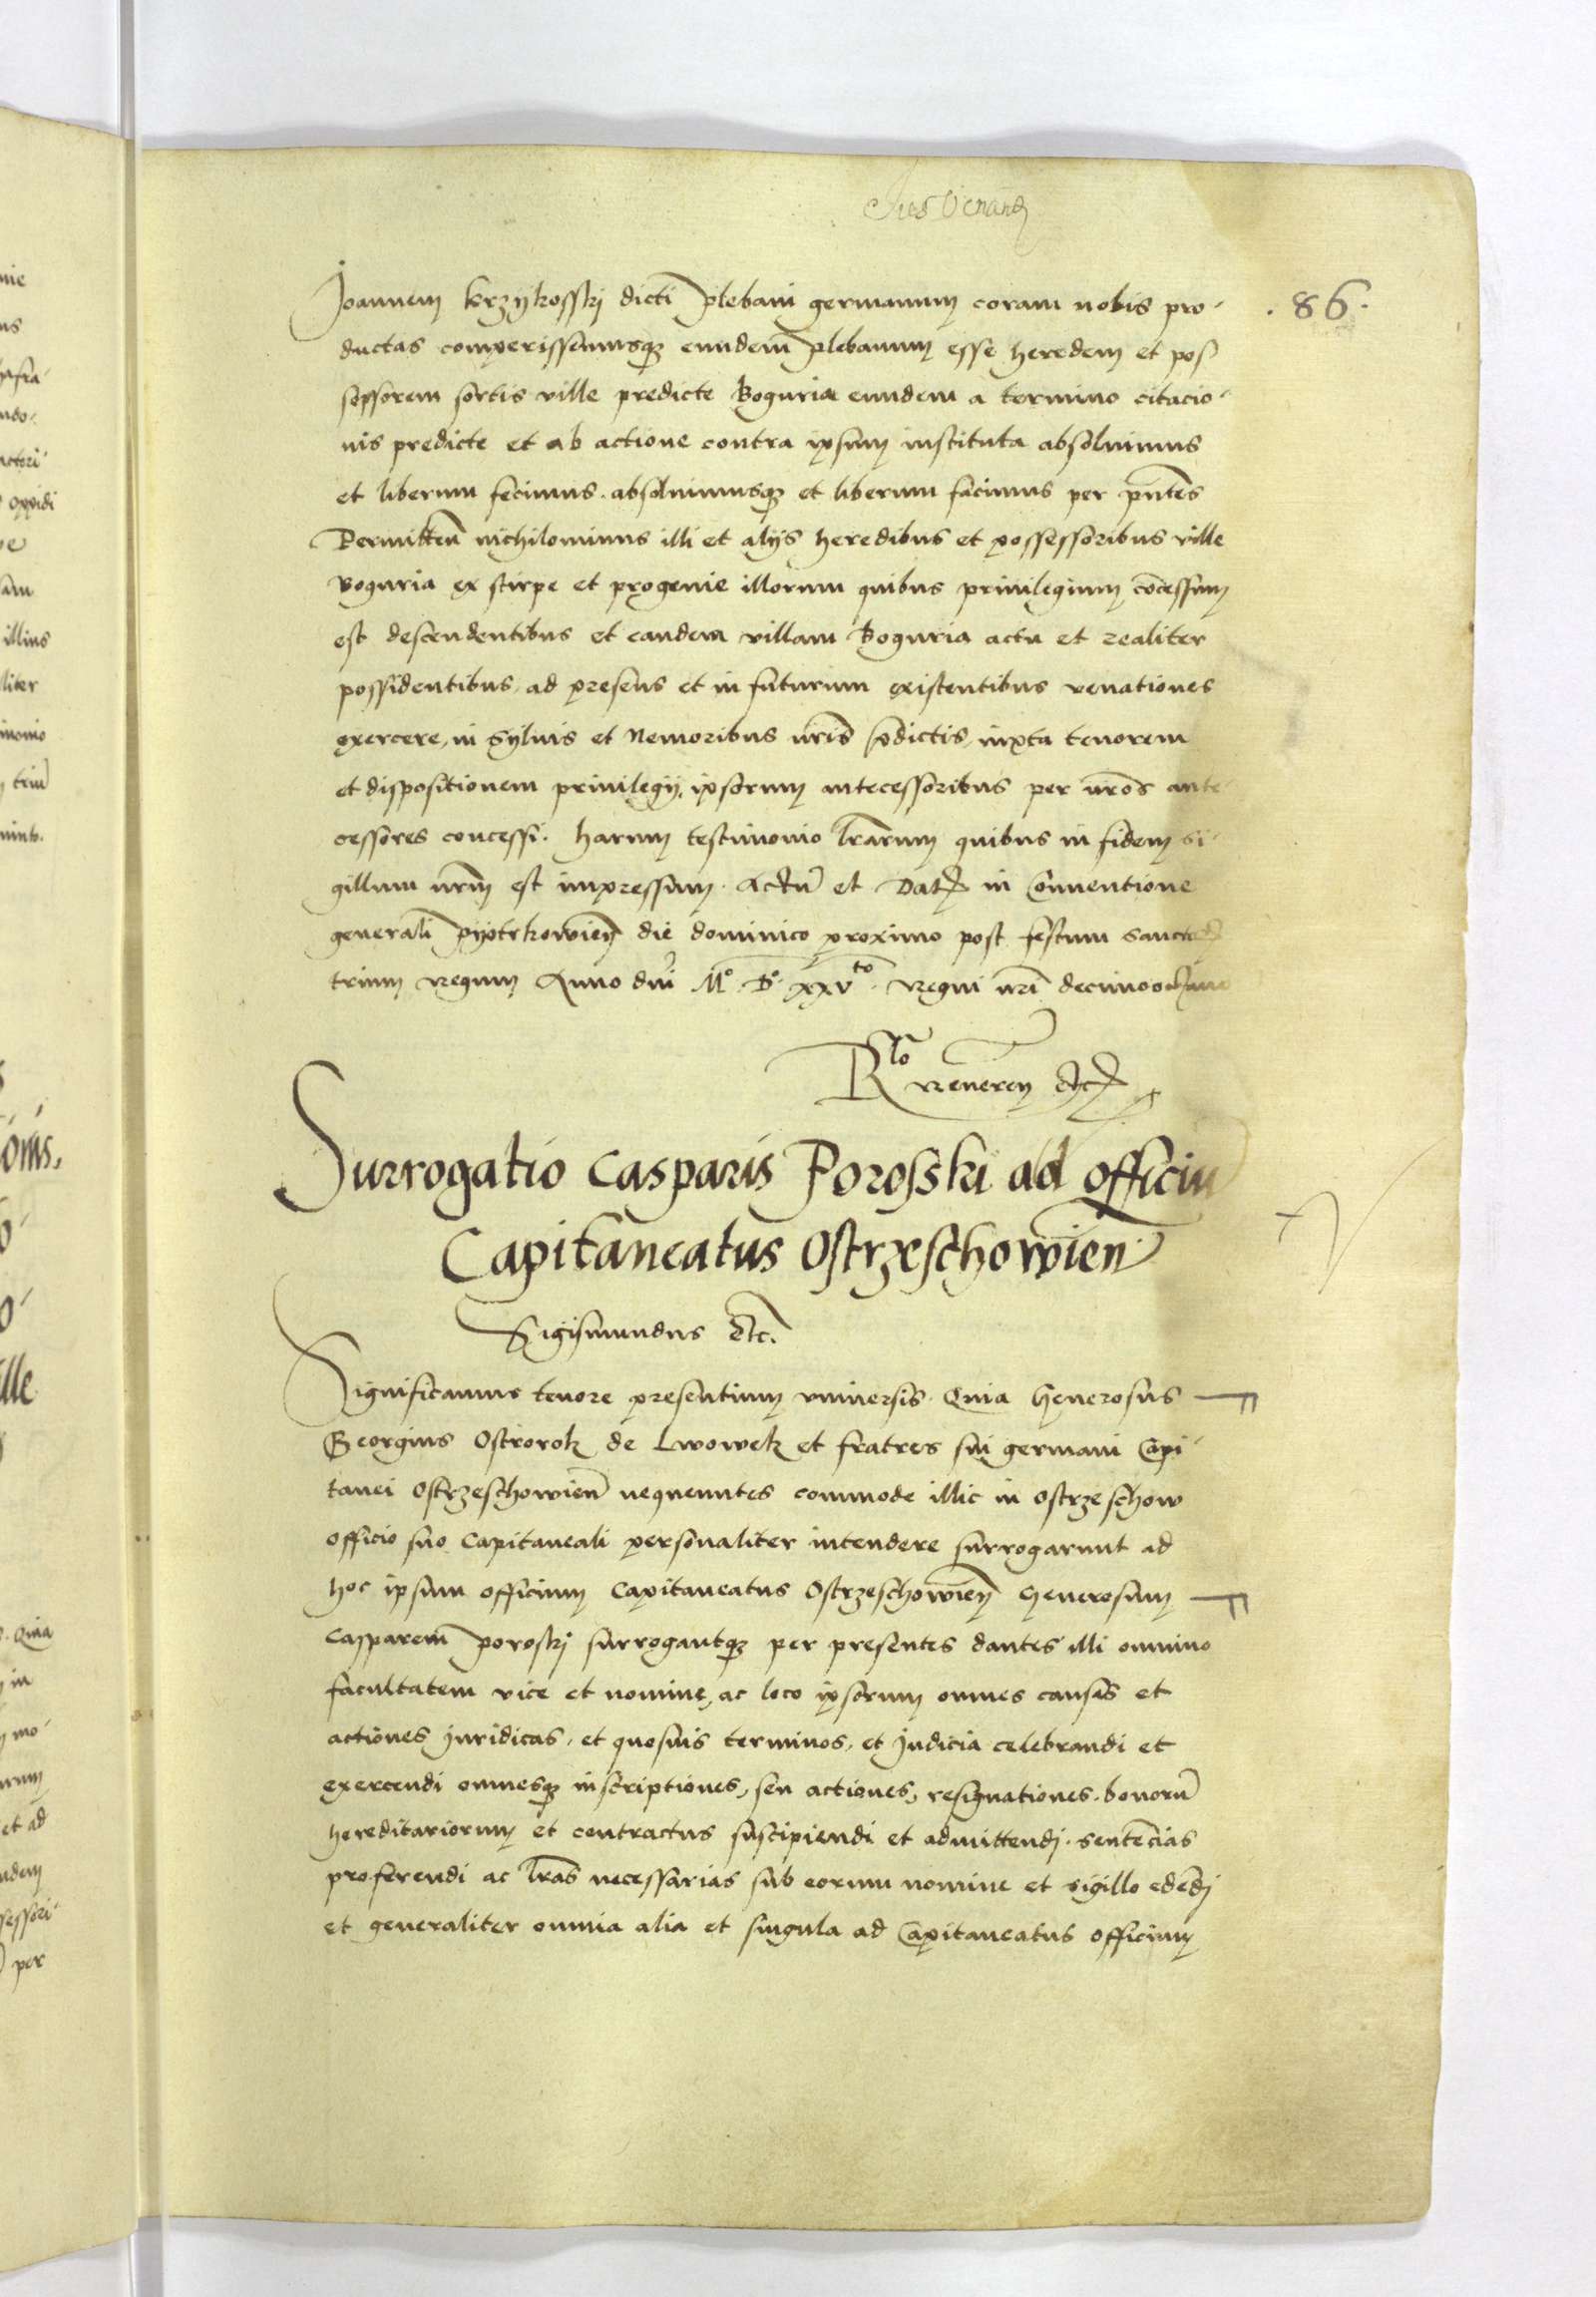 Ius Venandi
. 86 .
Joannem krzijkosskj dicti plebani germanum coram nobis pro-
ductas comperissemusq3 eundem plebanum esse heredem et pos
sessorem sortis ville predicte Boguria eundem a termino citacio-
nis predicte et ab actione contra ipsum instituta absoluimus
et liberum fecimus . absoluimusq3 et liberum facimus per pñtes
Permitteñ nichilominus illi et alijs heredibus et possessoribus ville
Boguria ex stirpe et progenie illorum quibus priuilegium cõcessum
est descendentibus et eandem villam Boguria actu et realiter
possidentibus, ad presens et in futurum existentibus venationes
exercere, in Syluis et Nemoribus nr̃is p̃dictis, iuxta tenorem
et dispositionem priuilegij, ipsorum antecessoribus per nr̃os ante-
cessores concessi. harum testimonio lr̃arum quibus in fidem si-
gillum nr̃m est impressum . Actũ et Dat in Conuentione
generali pijotrkowieñ die dominico proximo post festum sanctor
trium regum Anno dñi M° . D° . xxv to . regni nr̃i decimooctauo
R lo reueren etc
Surrogatio Casparis Porosski ad officiũ
Capitaneatus Ostrzeschowieñ
Sigismundus etc.
Significamus tenore presentium vniuersis. Quia Generosus
Georgius Ostrorok de Lwowek et fratres sui germani Capi-
tanei Ostrzeschowieñ nequeuntes commode illic in ostrzeschow
officio suo Capitaneali personaliter intendere surrogarunt ad
hoc ipsum officium Capitaneatus Ostrzeschowieñ Generosum
Casparem poroskj surrogantq3 per presentes dantes illi omnino
facultatem vice et nomine, ac loco ipsorum omnes causas et
actiones juridicas, et quosuis terminos, et judicia celebrandi et
exercendi omnesq3 inscriptiones, seu actiones, resignationes . bonorũ
hereditariorum et contractus suscipiendi et admittendj . sentẽcias
proferendi ac lr̃as necessarias sub eorum nomine et sigillo edẽdj
et generaliter omnia alia et singula ad Capitaneatus officium